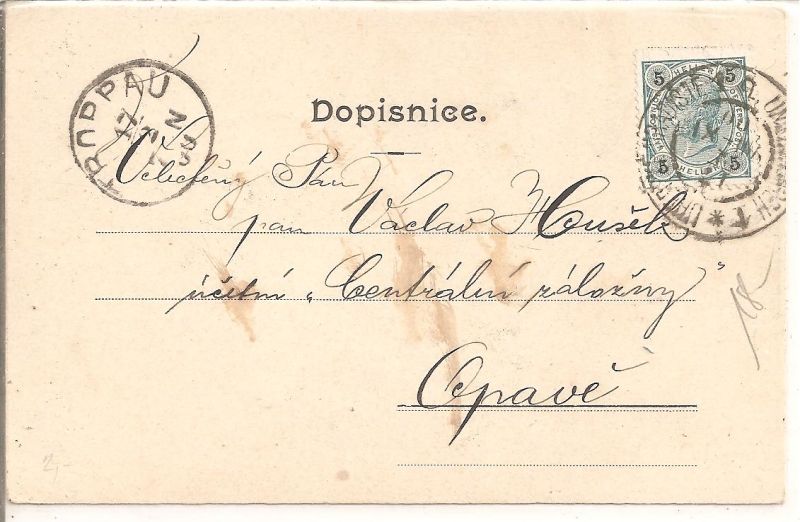 Dopisnice.
TROPPAU
5 HELLER 5
5 HELLER 5
Velectěný Pán
pan Václav Housek
účetní „Centrální záložny"
Opavě
18
2,-